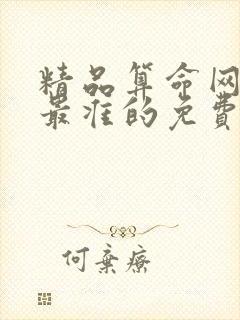 精品算命网
最准的免费
何弃疗